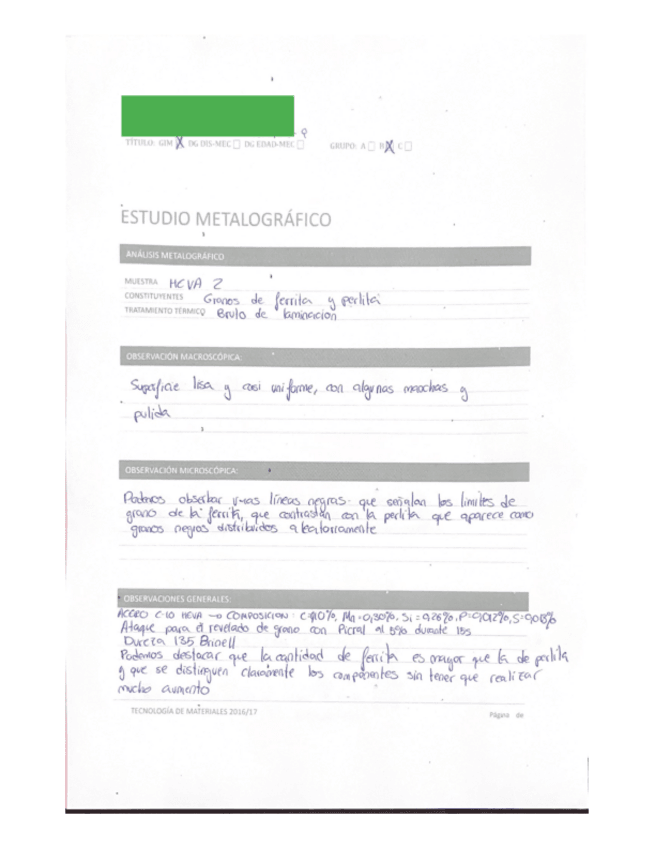 TÍTULO: GIM X DG DIS-MEC □ DG EDAD-MEC □ GRUPO: A □ B X C □
ESTUDIO METALOGRÁFICO
ANÁLISIS METALOGRÁFICO
MUESTRA HEVA 2
CONSTITUYENTES Granos de ferrita y perlita
TRATAMIENTO TÉRMICO Bruto de laminación
OBSERVACIÓN MACROSCÓPICA:
Superficie lisa y casi uniforme, con algunas manchas y
pulida
OBSERVACIÓN MICROSCÓPICA:
Podemos observar unas líneas negras que señalan los límites de
grano de la ferrita, que contrastan con la perlita que aparece como
granos negros distribuidos aleatoriamente
OBSERVACIONES GENERALES:
ACERO C-10 HEVA → COMPOSICION: C=0,10%, Mn=0,30%, Si=0,26%, P=0,012%, S=0,013%
Ataque para el revelado de grano con Picral al 5% durante 15s
Dureza 135 Brinell
Podemos destacar que la cantidad de ferrita es mayor que la de perlita
y que se distinguen claramente los componentes sin tener que realizar
mucho aumento
TECNOLOGÍA DE MATERIALES 2016/17 Página de